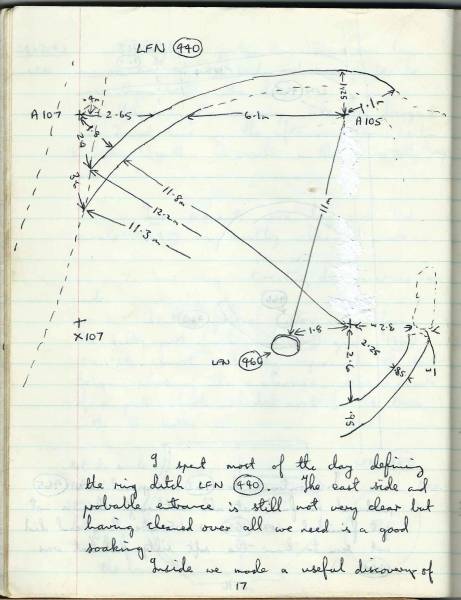 LFN 440
A107
2.65
6.1m
1.25
1.1m
A105
2.9
1.8
3.6
11.8m
12.2m
11.3m
11m
X107
LFN 466
1.8
2.8
2.25
2.6
.85
1
.95
I spent most of the day defining
the ring ditch LFN 440. The east side and
probable entrance is still not very clear but
having cleaned over all we need is a good
soaking.
Inside we made a useful discovery of
17